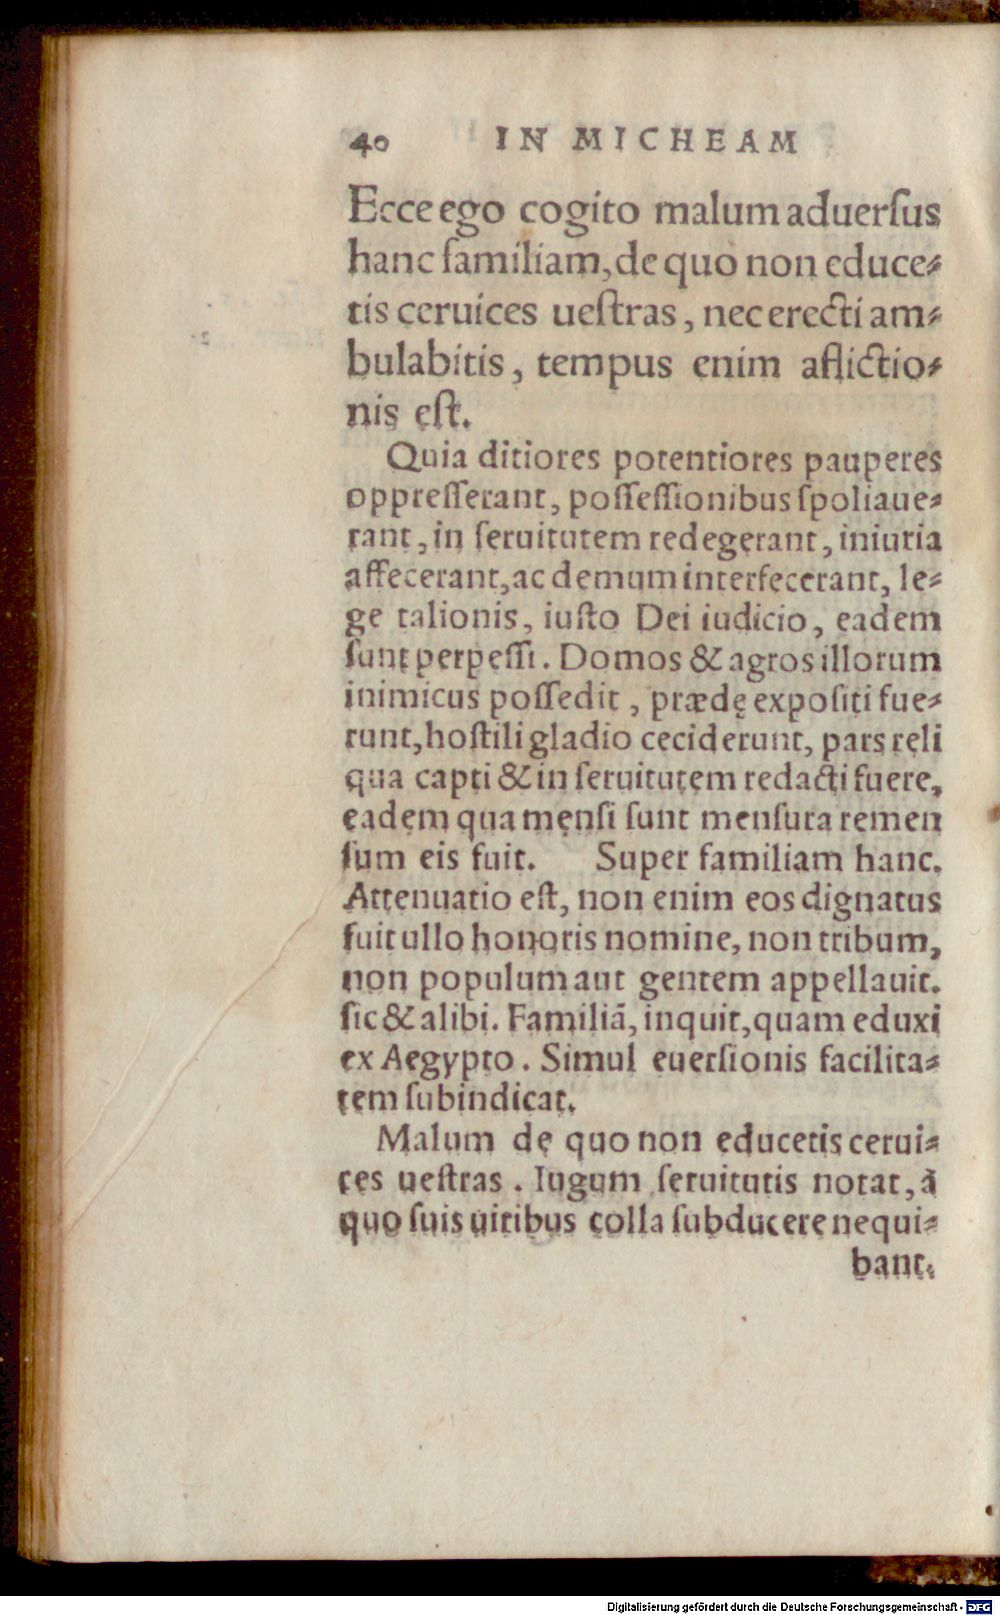 40 IN MICHEAM
Ecce ego cogito malum aduerſus
hanc familiam, de quo non educe⸗
tis ceruices ueſtras, nec erecti am⸗
bulabitis, tempus enim aflictio⸗
nis eſt.
Quia ditiores potentiores pauperes
oppreſſerant, poſſeſſionibus ſpoliaue⸗
rant, in ſeruitutem redegerant, iniuria
affecerant, ac demum interfecerant, le⸗
ge talionis, iuſto Dei iudicio, eadem
ſunt perpeſſi. Domos & agros illorum
inimicus poſſedit, prædę expoſiti fue⸗
runt, hoſtili gladio ceciderunt, pars reli
qua capti & in ſeruitutem redacti fuere,
eadem qua menſi ſunt menſura remen
ſum eis fuit. Super familiam hanc.
Attenuatio eſt, non enim eos dignatus
fuit ullo honoris nomine, non tribum,
non populum aut gentem appellauit.
ſic & alibi. Familiã, inquit, quam eduxi
ex Aegypto. Simul euerſionis facilita⸗
tem ſubindicat.
Malum de quo non educetis cerui⸗
ces ueſtras. Iugum ſeruitutis notat, à
quo ſuis uiribus colla ſubducere nequi⸗
bant.
Digitalisierung gefördert durch die Deutsche Forschungsgemeinschaft - DFG